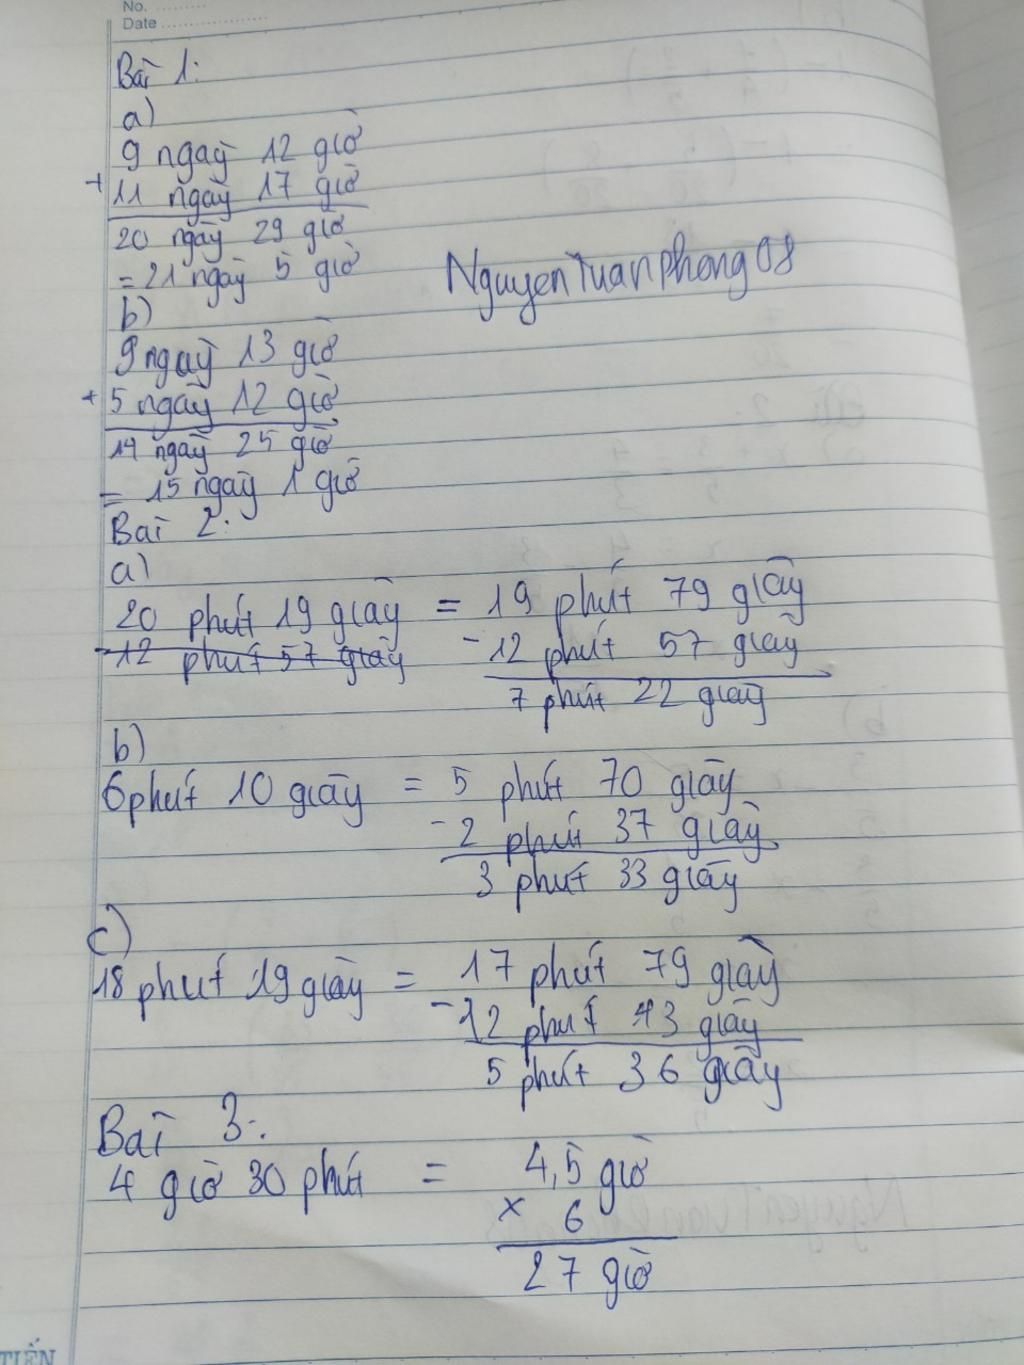 No. ..........
Date ....................
Bài 1:
a)
9 ngày 12 giờ
+ 11 ngày 17 giờ
20 ngày 29 giờ
= 21 ngày 5 giờ
NguyenTuanphong08
b)
9 ngày 13 giờ
+ 5 ngày 12 giờ
14 ngày 25 giờ
= 15 ngày 1 giờ
Bài 2:
a)
20 phút 19 giây = 19 phút 79 giây
-12 phút 57 giây - 12 phút 57 giây
7 phút 22 giây
b)
6 phút 10 giây = 5 phút 70 giây
- 2 phút 37 giây
3 phút 33 giây
c)
18 phút 19 giây = 17 phút 79 giây
- 12 phút 43 giây
5 phút 36 giây
Bài 3:
4 giờ 30 phút = 4,5 giờ
x 6
27 giờ
TIẾN